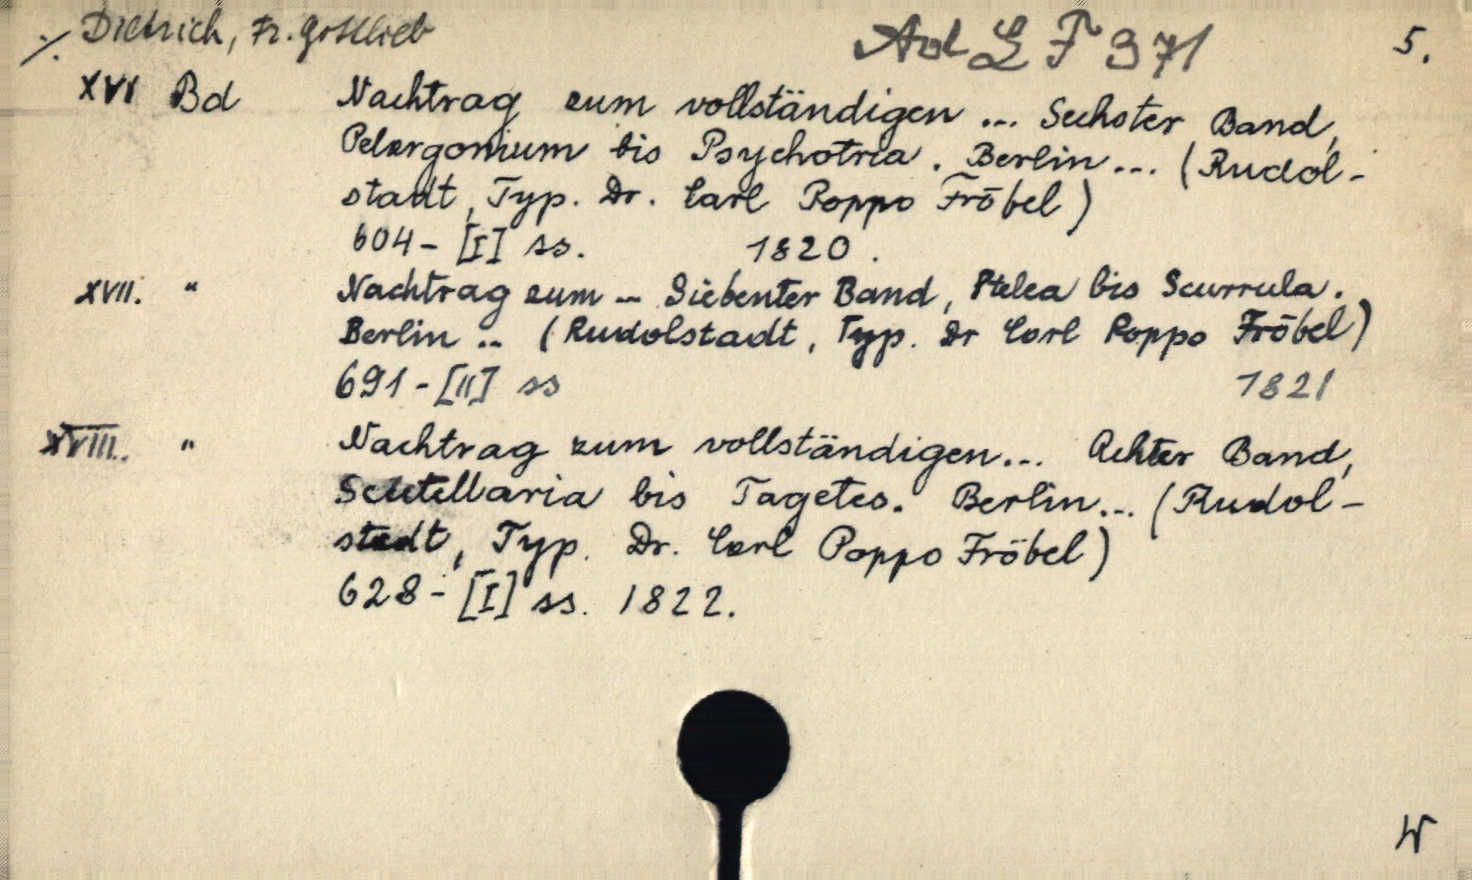 ./. Dietrich, Fr. Gottlieb
Ad LF 971
5.
XVI Bd Nachtrag zum vollständigen ... Sechster Band,
Pelargonium bis Psychotria. Berlin... (Rudol-
stadt, Typ. Dr. Carl Poppo Fröbel)
604-[I] ss. 1820.
XVII. " Nachtrag zum ... Siebenter Band, Ptelea bis Scurrula.
Berlin .. (Rudolstadt, Typ. Dr Carl Poppo Fröbel)
691-[II] ss 1821
XVIII. " Nachtrag zum vollständigen... Achter Band,
Scutellaria bis Tagetes. Berlin... (Rudol-
stadt, Typ. Dr. Carl Poppo Fröbel)
628-[I] ss. 1822.
W